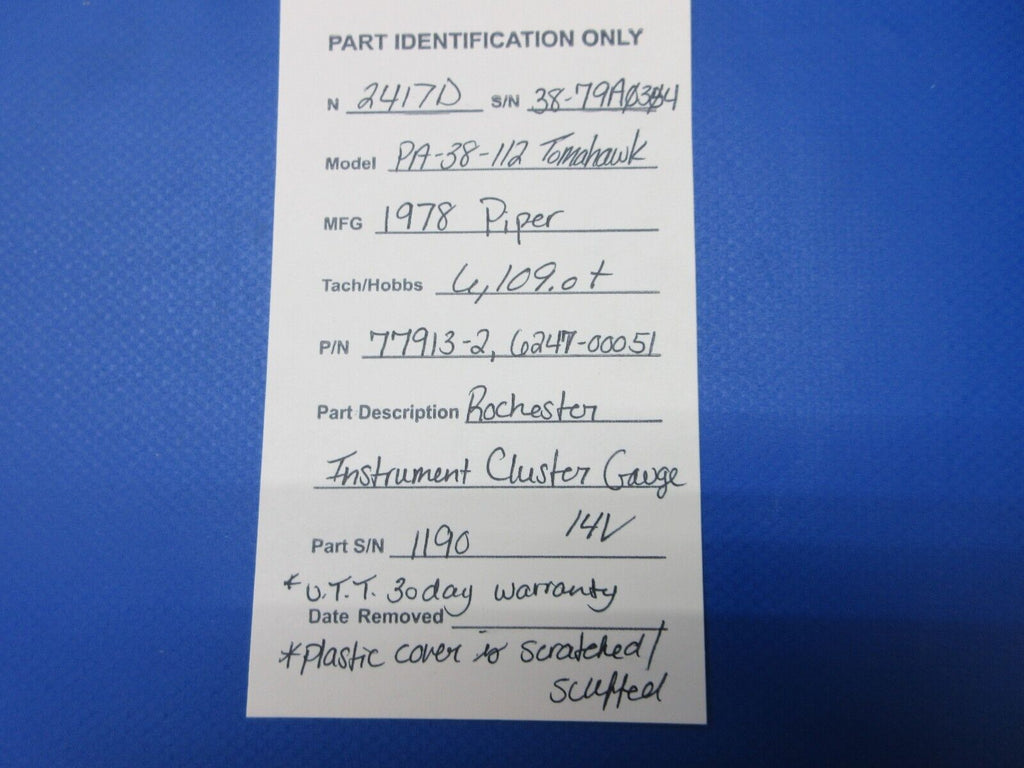 PART IDENTIFICATION ONLY
N 2417D S/N 38-79A0304
Model PA-38-112 Tomahawk
MFG 1978 Piper
Tach/Hobbs 6,109.0t
P/N 77913-2, 6247-00051
Part Description Rochester
Instrument Cluster Gauge
14V
Part S/N 1190
*U.T.T. 30day warranty
Date Removed
*plastic cover is scratched/
scuffed